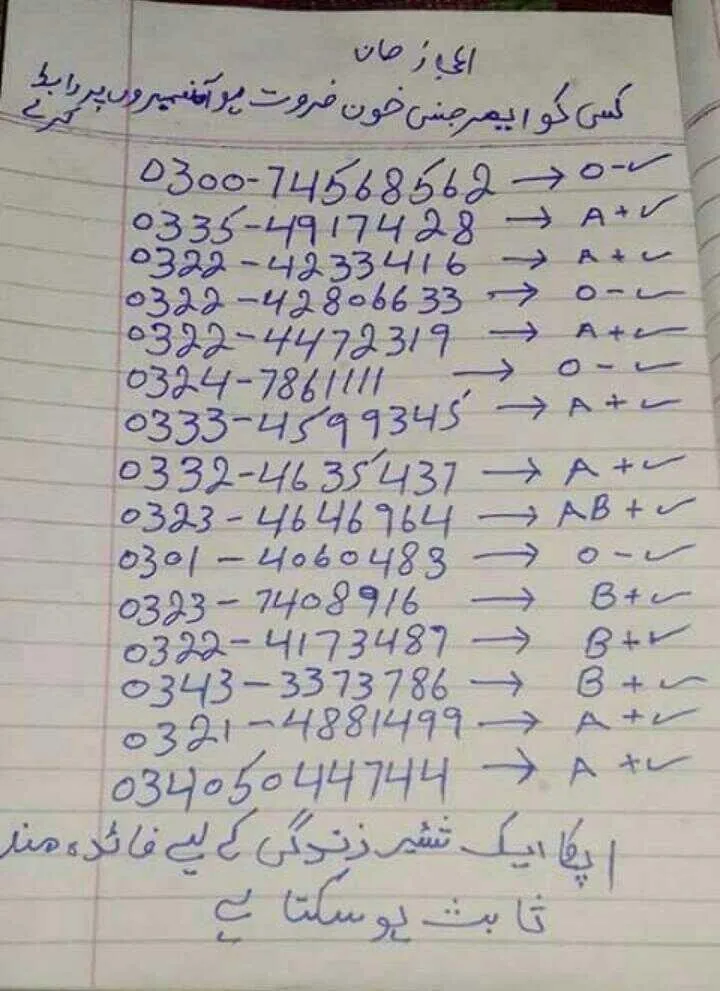 اعجاز خان
کسی کو ایمرجنسی خون ضرورت ہو آنمبیروں پر رابطہ
کرے
0300-74568562 → O-✓
0335-4917428 → A+✓
0322-4233416 → A+✓
0322-42806633 → O-✓
0322-4472319 → A+✓
0324-7861111 → O-✓
0333-4599345 → A+✓
0332-4635437 → A+✓
0323-4646964 → AB+✓
0301-4060483 → O-✓
0323-7408916 → B+✓
0322-4173487 → B+✓
0343-3373786 → B+✓
0321-4881499 → A+✓
03405044744 → A+✓
اپکا ایک شئیر زندگی کے لیے فائدہ مند
ثابت ہو سکتا ہے